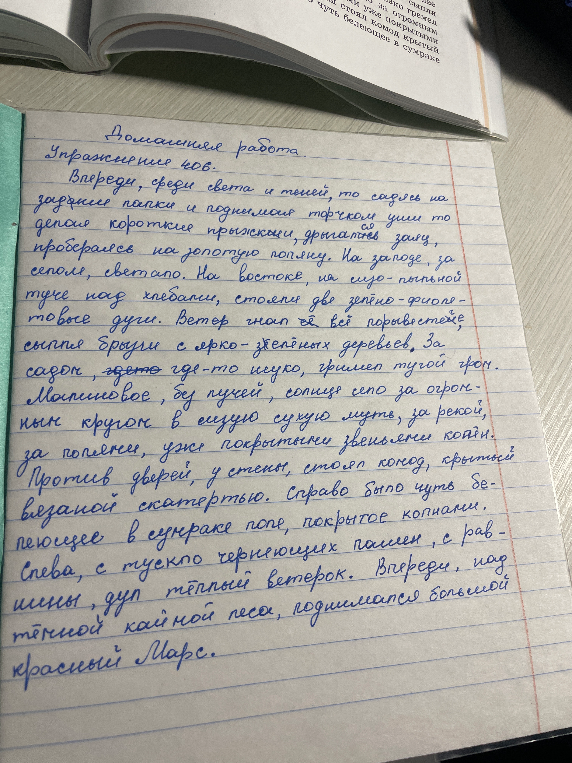 сыпля
грежел
за огромным
ки уже покрытыми
стоял комод крытый
чуть белеющее в сумраке
Домашняя работа.
Упражнение 406.
Впереди, среди света и теней, то садясь на
задние лапки и поднимая торчком уши то
делая короткие прыжки, дрыгался заяц,
пробераясь на золотую поляну. На западе, за
селом, светало. На востоке, на сизо-пыльной
туче над хлебами, стояли две зелёно-фиоле-
товые дуги. Ветер гнал её всё порывестее,
сыпля брызги с ярко-зелёных деревьев. За
садом, где-то глухо, гремел тугой гром.
Малиновое, без лучей, солнце село за огром-
ным кругом в сизую сухую муть, за рекой,
за полями, уже покрытыми звеньями копён.
Против дверей, у стены, стоял комод, крытый
вязаной скатертью. Справо было чуть бе-
леющее в сумраке поле, покрытое копнами.
Слева, с тускло чернеющих пашен, с рав-
нины, дул тёплый ветерок. Впереди, над
тёмной каймой леса, поднимался большой
красный Марс.